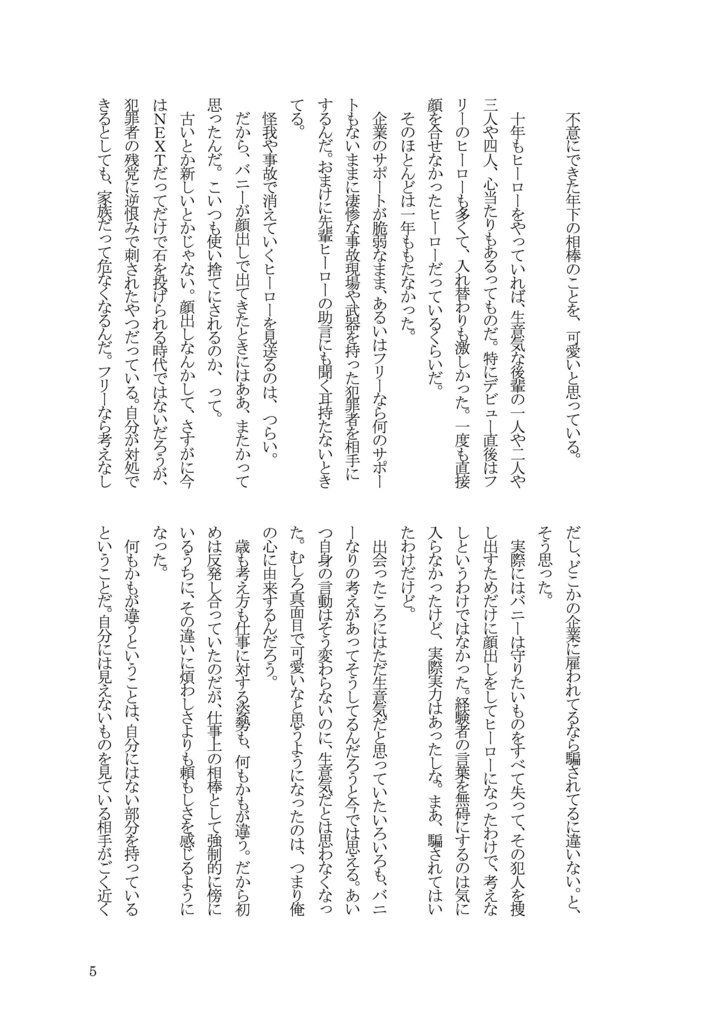 不意にできた年下の相棒のことを、可愛いと思っている。
十年もヒーローをやっていれば、生意気な後輩の一人や二人や
三人や四人、心当たりもあるってものだ。特にデビュー直後はフ
リーのヒーローも多くて、入れ替わりも激しかった。一度も直接
顔を合せなかったヒーローだっているくらいだ。
そのほとんどは一年ももたなかった。
企業のサポートが脆弱なまま、あるいはフリーなら何のサポー
トもないままに凄惨な事故現場や武器を持った犯罪者を相手に
するんだ。おまけに先輩ヒーローの助言にも聞く耳持たないとき
てる。
怪我や事故で消えていくヒーローを見送るのは、つらい。
だから、バニーが顔出しで出てきたときにはああ、またかって
思ったんだ。こいつも使い捨てにされるのか、って。
古いとか新しいとかじゃない。顔出しなんかして、さすがに今
はNEXTだってだけで石を投げられる時代ではないだろうが、
犯罪者の残党に逆恨みで刺されたやつだっている。自分が対処で
きるとしても、家族だって危なくなるんだ。フリーなら考えなし
だし、どこかの企業に雇われてるなら騙されてるに違いない。と、
そう思った。
実際にはバニーは守りたいものをすべて失って、その犯人を捜
し出すためだけに顔出しをしてヒーローになったわけで、考えな
しというわけではなかった。経験者の言葉を無碍にするのは気に
入らなかったけど、実際実力はあったしな。まあ、騙されてはい
たわけだけど。
出会ったころにはただ生意気だと思っていたいろいろも、バニ
ーなりの考えがあってそうしてるんだろうと今では思える。あい
つ自身の言動はそう変わらないのに、生意気だとは思わなくなっ
た。むしろ真面目で可愛いなと思うようになったのは、つまり俺
の心に由来するんだろう。
歳も考え方も仕事に対する姿勢も、何もかもが違う。だから初
めは反発し合っていたのだが、仕事上の相棒として強制的に傍に
いるうちに、その違いに煩わしさよりも頼もしさを感じるように
なった。
何もかもが違うということは、自分にはない部分を持っている
ということだ。自分には見えないものを見ている相手がごく近く
5